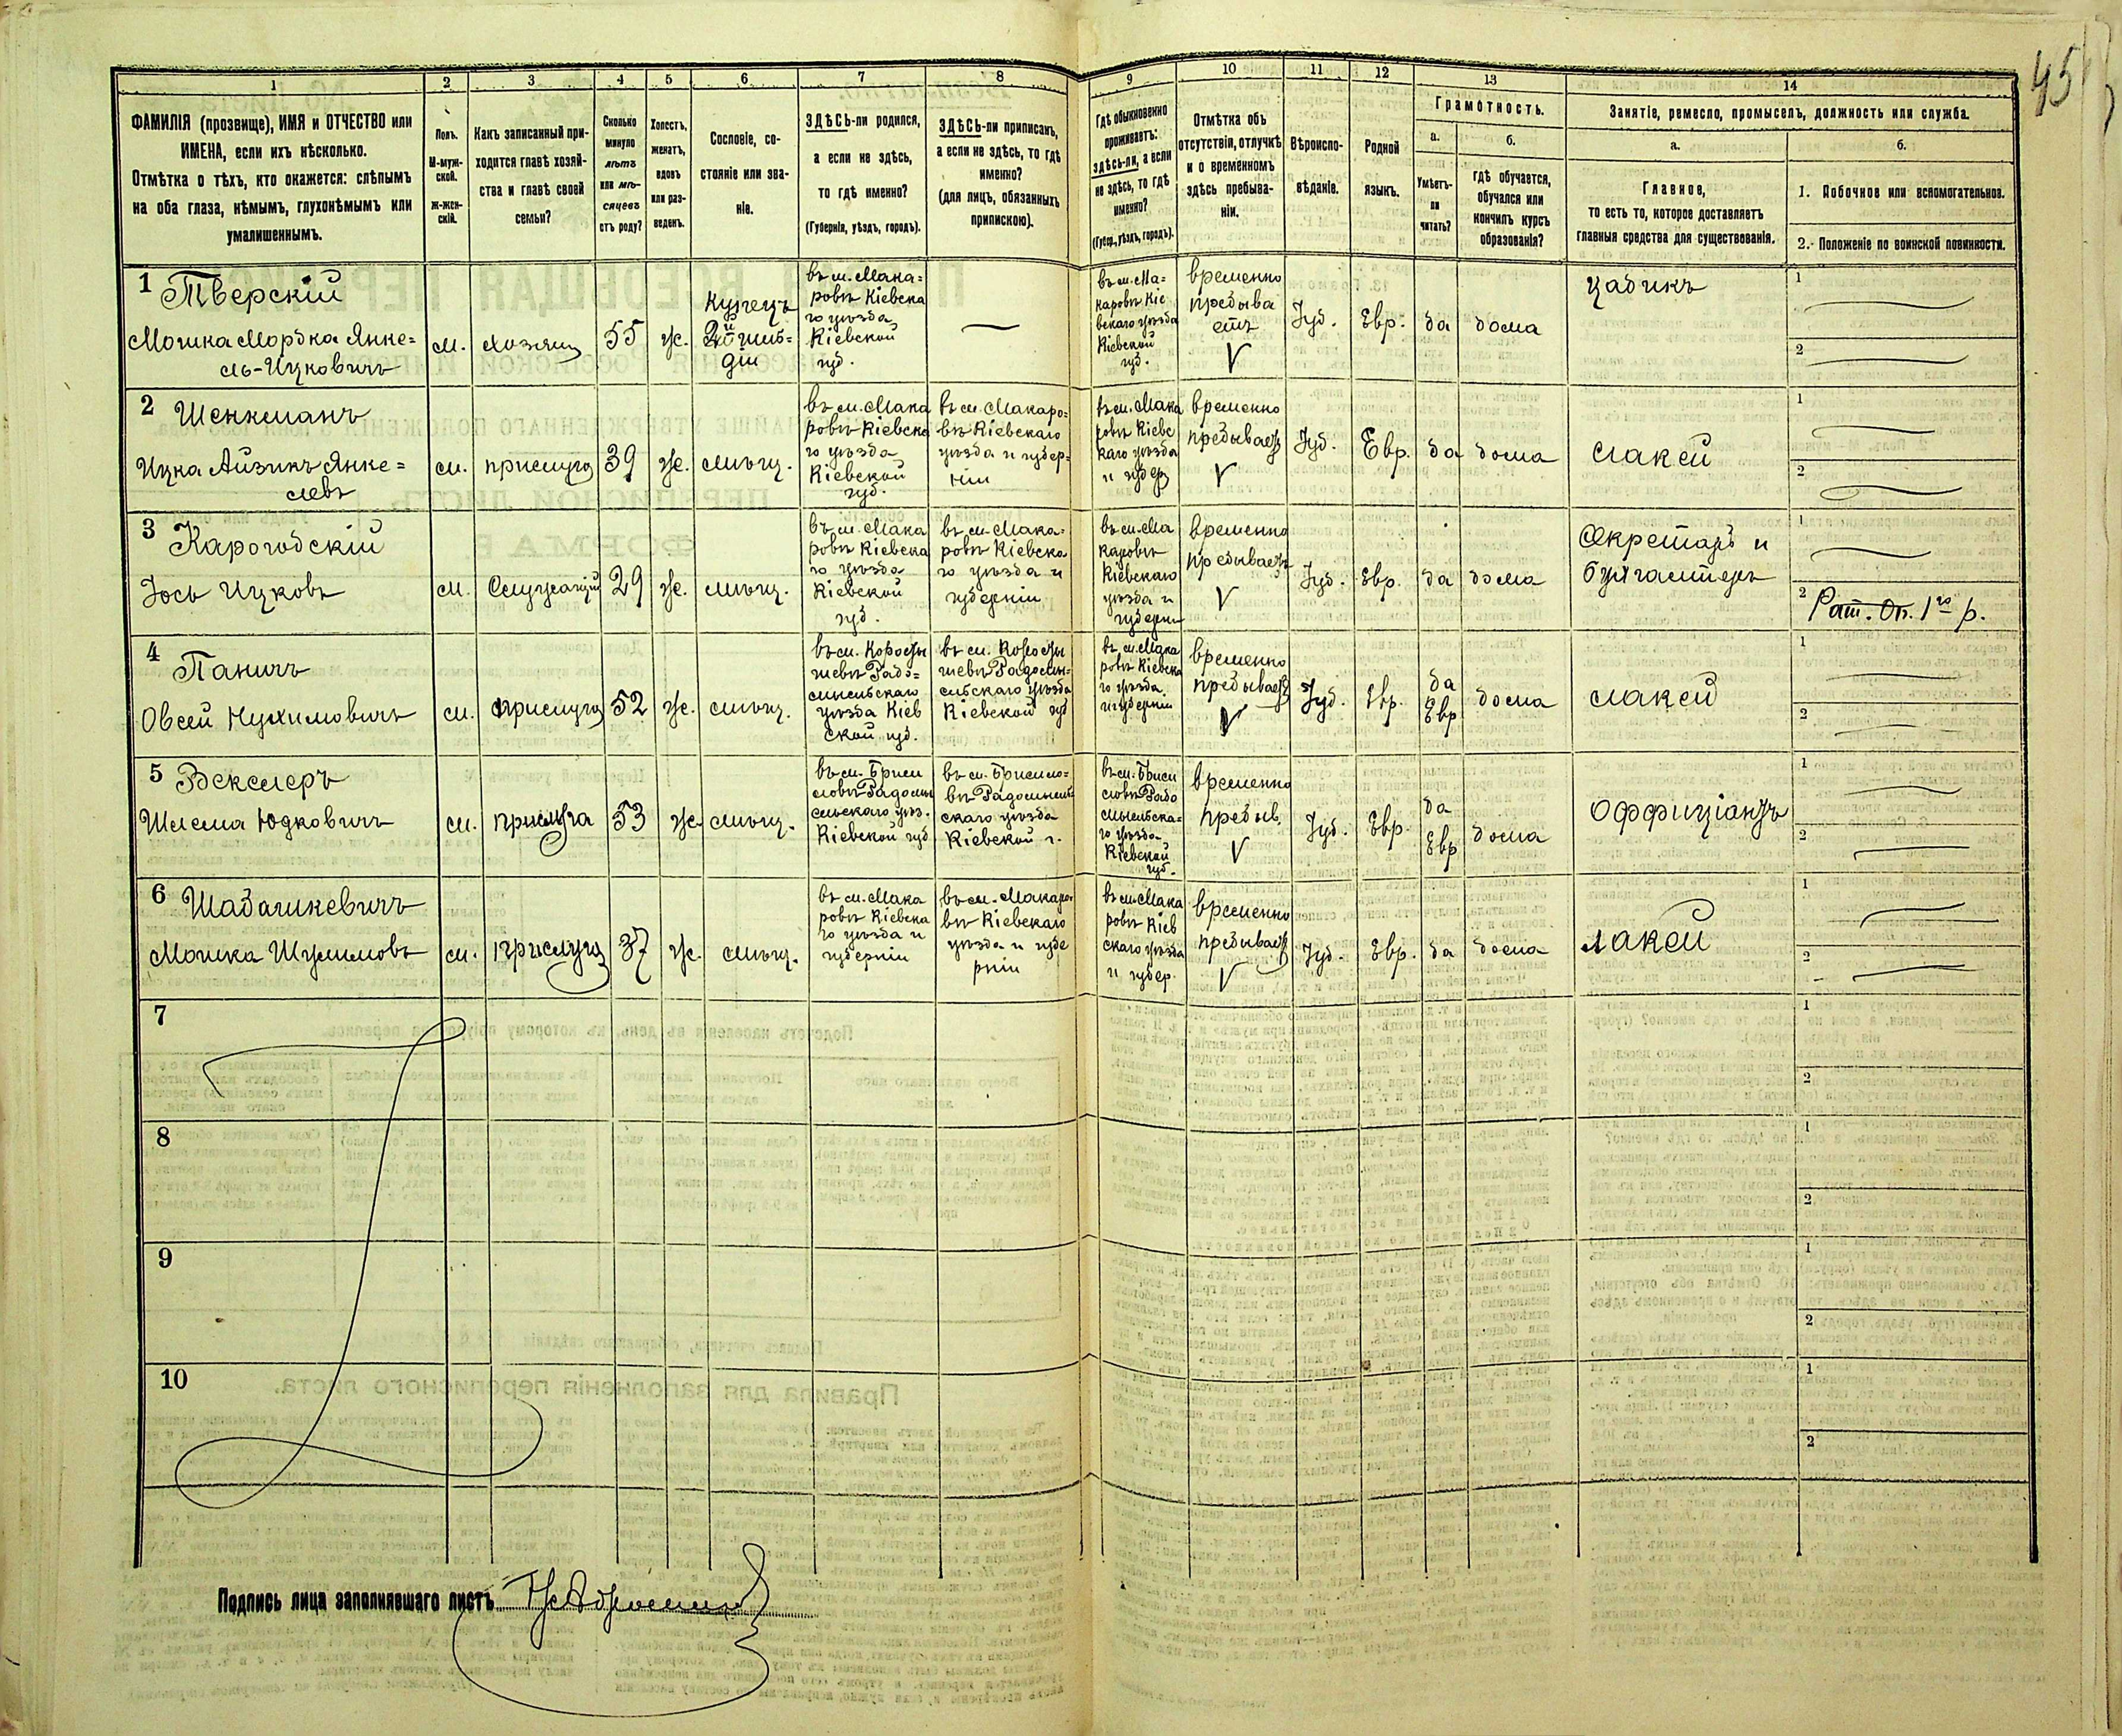 45
1 2 3 4 5 6 7 8 9 10 11 12 13 14
ФАМИЛІЯ (прозвище), ИМЯ и ОТЧЕСТВО или
ИМЕНА, если ихъ нѣсколько.
Отмѣтка о тѣхъ, кто окажется: слѣпымъ
на оба глаза, нѣмымъ, глухонѣмымъ или
умалишеннымъ.
Полъ.
М-муж-
ской.
ж-жен-
скій.
Какъ записанный при-
ходится главѣ хозяй-
ства и главѣ своей
семьи?
Сколько
минуло
лѣтъ
или мѣ-
сяцевъ
отъ роду?
Холостъ,
женатъ,
вдовъ
или раз-
веденъ.
Сословіе, со-
стояніе или зва-
ніе.
ЗДѢСЬ-ли родился,
а если не здѣсь,
то гдѣ именно?
(Губернія, уѣздъ, городъ).
ЗДѢСЬ-ли приписанъ,
а если не здѣсь, то гдѣ
именно?
(для лицъ, обязанныхъ
припискою).
Гдѣ обыкновенно
проживаетъ:
здѣсь-ли, а если
не здѣсь, то гдѣ
именно?
(Губер., уѣздъ, городъ).
Отмѣтка объ
отсутствіи, отлучкѣ
и о временномъ
здѣсь пребыва-
ніи.
Вѣроиспо-
вѣданіе.
Родной
языкъ.
Грамотность.
а.
Умѣетъ-
ли
читать?
б.
гдѣ обучается,
обучался или
кончилъ курсъ
образованія?
Занятіе, ремесло, промыселъ, должность или служба.
а.
Главное,
то есть то, которое доставляетъ
главныя средства для существованія.
б.
1. Побочное или вспомогательное.
2. Положеніе по воинской повинности.
1 Тверскій
Мошка Мордка Янке=
ль-Ицковичъ
м.
хозяинъ
55
ж.
Купецъ
2й гиль=
діи
въ м. Мака=
ровѣ Кіевска
го уѣзда
Кіевской
губ.
въ м. Ма=
каровѣ Кіе
вскаго уѣзда
Кіевской
губ.
временно
пребыва
етъ
Іуд.
Евр.
да
дома
цадикъ
1
2
2 Шенкманъ
Ицка Айзикъ Янке=
левъ
м.
прислуга
39
ж.
мѣщ.
въ м. Мака
ровѣ Кіевска
го уѣзда
Кіевской
губ.
въ м. Макаро=
вѣ Кіевскаго
уѣзда и губер=
ніи
въ м. Мака
ровѣ Кіевс
каго уѣзда
и губер
временно
пребываетъ
Іуд.
Евр.
да
дома
лакей
1
2
3 Карогодскій
Іось Ицковъ
м.
Служащій
29
ж.
мѣщ.
въ м. Мака
ровѣ Кіевска
го уѣзда
Кіевской
губ.
въ м. Мака=
ровѣ Кіевска
го уѣзда и
губерніи
въ м. Ма
каровѣ
Кіевскаго
уѣзда и
губерніи
временно
пребываетъ
Іуд.
Евр.
да
дома
Секретарь и
бухгалтеръ
1
2 Рат. Оп. 1го р.
4 Паничъ
Овсей Нухимовичъ
м.
прислуга
52
ж.
мѣщ.
въ м. Коросты
шевѣ Радо=
мысльскаго
уѣзда Кіев
ской губ.
въ м. Коросты
шевѣ Радомы=
сльскаго уѣзда
Кіевской губ
въ м. Мака
ровѣ Кіевска
го уѣзда
и губерніи
временно
пребываетъ
Іуд.
Евр.
да
Евр
дома
лакей
1
2
5 Векслеръ
Шлема Юдковичъ
м.
прислуга
53
ж.
мѣщ.
въ м. Бруси
ловѣ Радомы
сльскаго уѣз.
Кіевской губ
въ м. Брусило=
вѣ Радомысль
скаго уѣзда
Кіевской г.
въ м. Бруси
ловѣ Радо
мысльска=
го уѣзда
Кіевской
губ.
временно
пребыв.
Іуд.
Евр.
да
Евр
дома
Оффиціантъ
1
2
6 Шадашкевичъ
Мошка Шулимовъ
м.
прислуга
37
ж.
мѣщ.
въ м. Мака
ровѣ Кіевска
го уѣзда и
губерніи
въ м. Макаро
вѣ Кіевскаго
уѣзда и губе
рніи
въ м. Мака
ровѣ Кіев
скаго уѣзда
и губер.
временно
пребываетъ
Іуд.
Евр.
да
дома
лакей
1
2
7
1
2
8
1
2
9
1
2
10
1
2
Подпись лица заполнявшаго листъ